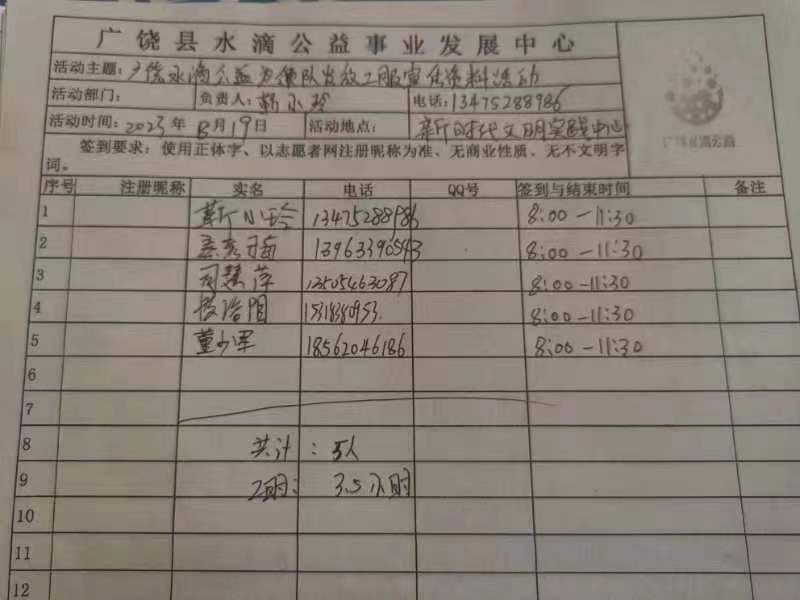 广饶县水滴公益事业发展中心
活动主题：广饶水滴公益志愿队发放工服宣传资料活动
活动部门： 负责人：靳小玲 电话：13475288986
活动时间：2023年8月19日 活动地点：新时代文明实践中心
签到要求：使用正体字、以志愿者网注册昵称为准、无商业性质、无不文明字
词。
广饶水滴公益
序号 注册昵称 实名 电话 QQ号 签到与结束时间 备注
1 靳小玲 13475288986 8:00-11:30
2 13963390543 8:00-11:30
3 司慧萍 13505463087 8:00-11:30
4 8:00-11:30
5 董少军 18562046186 8:00-11:30
6
7
8 共计：5人
9 工时：3.5小时
10
11
12